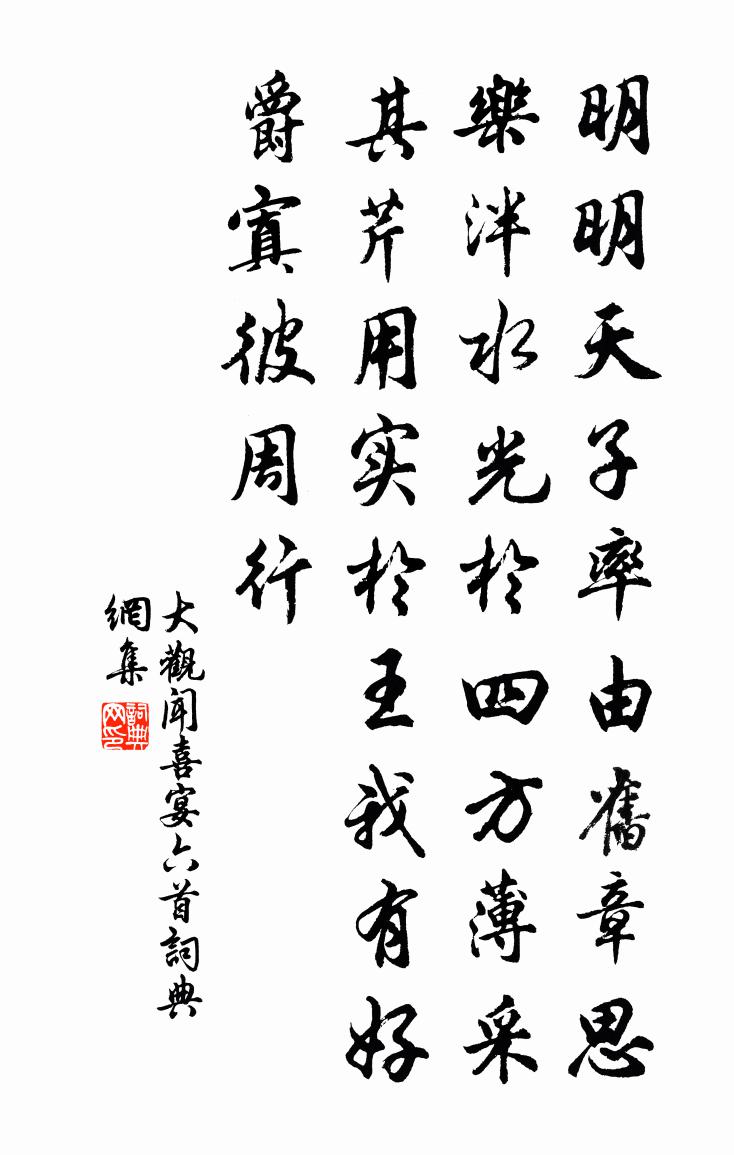 明明天子率由舊章思
樂泮水光於四方薄采
其芹用实於王我有好
爵寘彼周行
大觀聞喜宴六首詞典
網集
詞典
网印